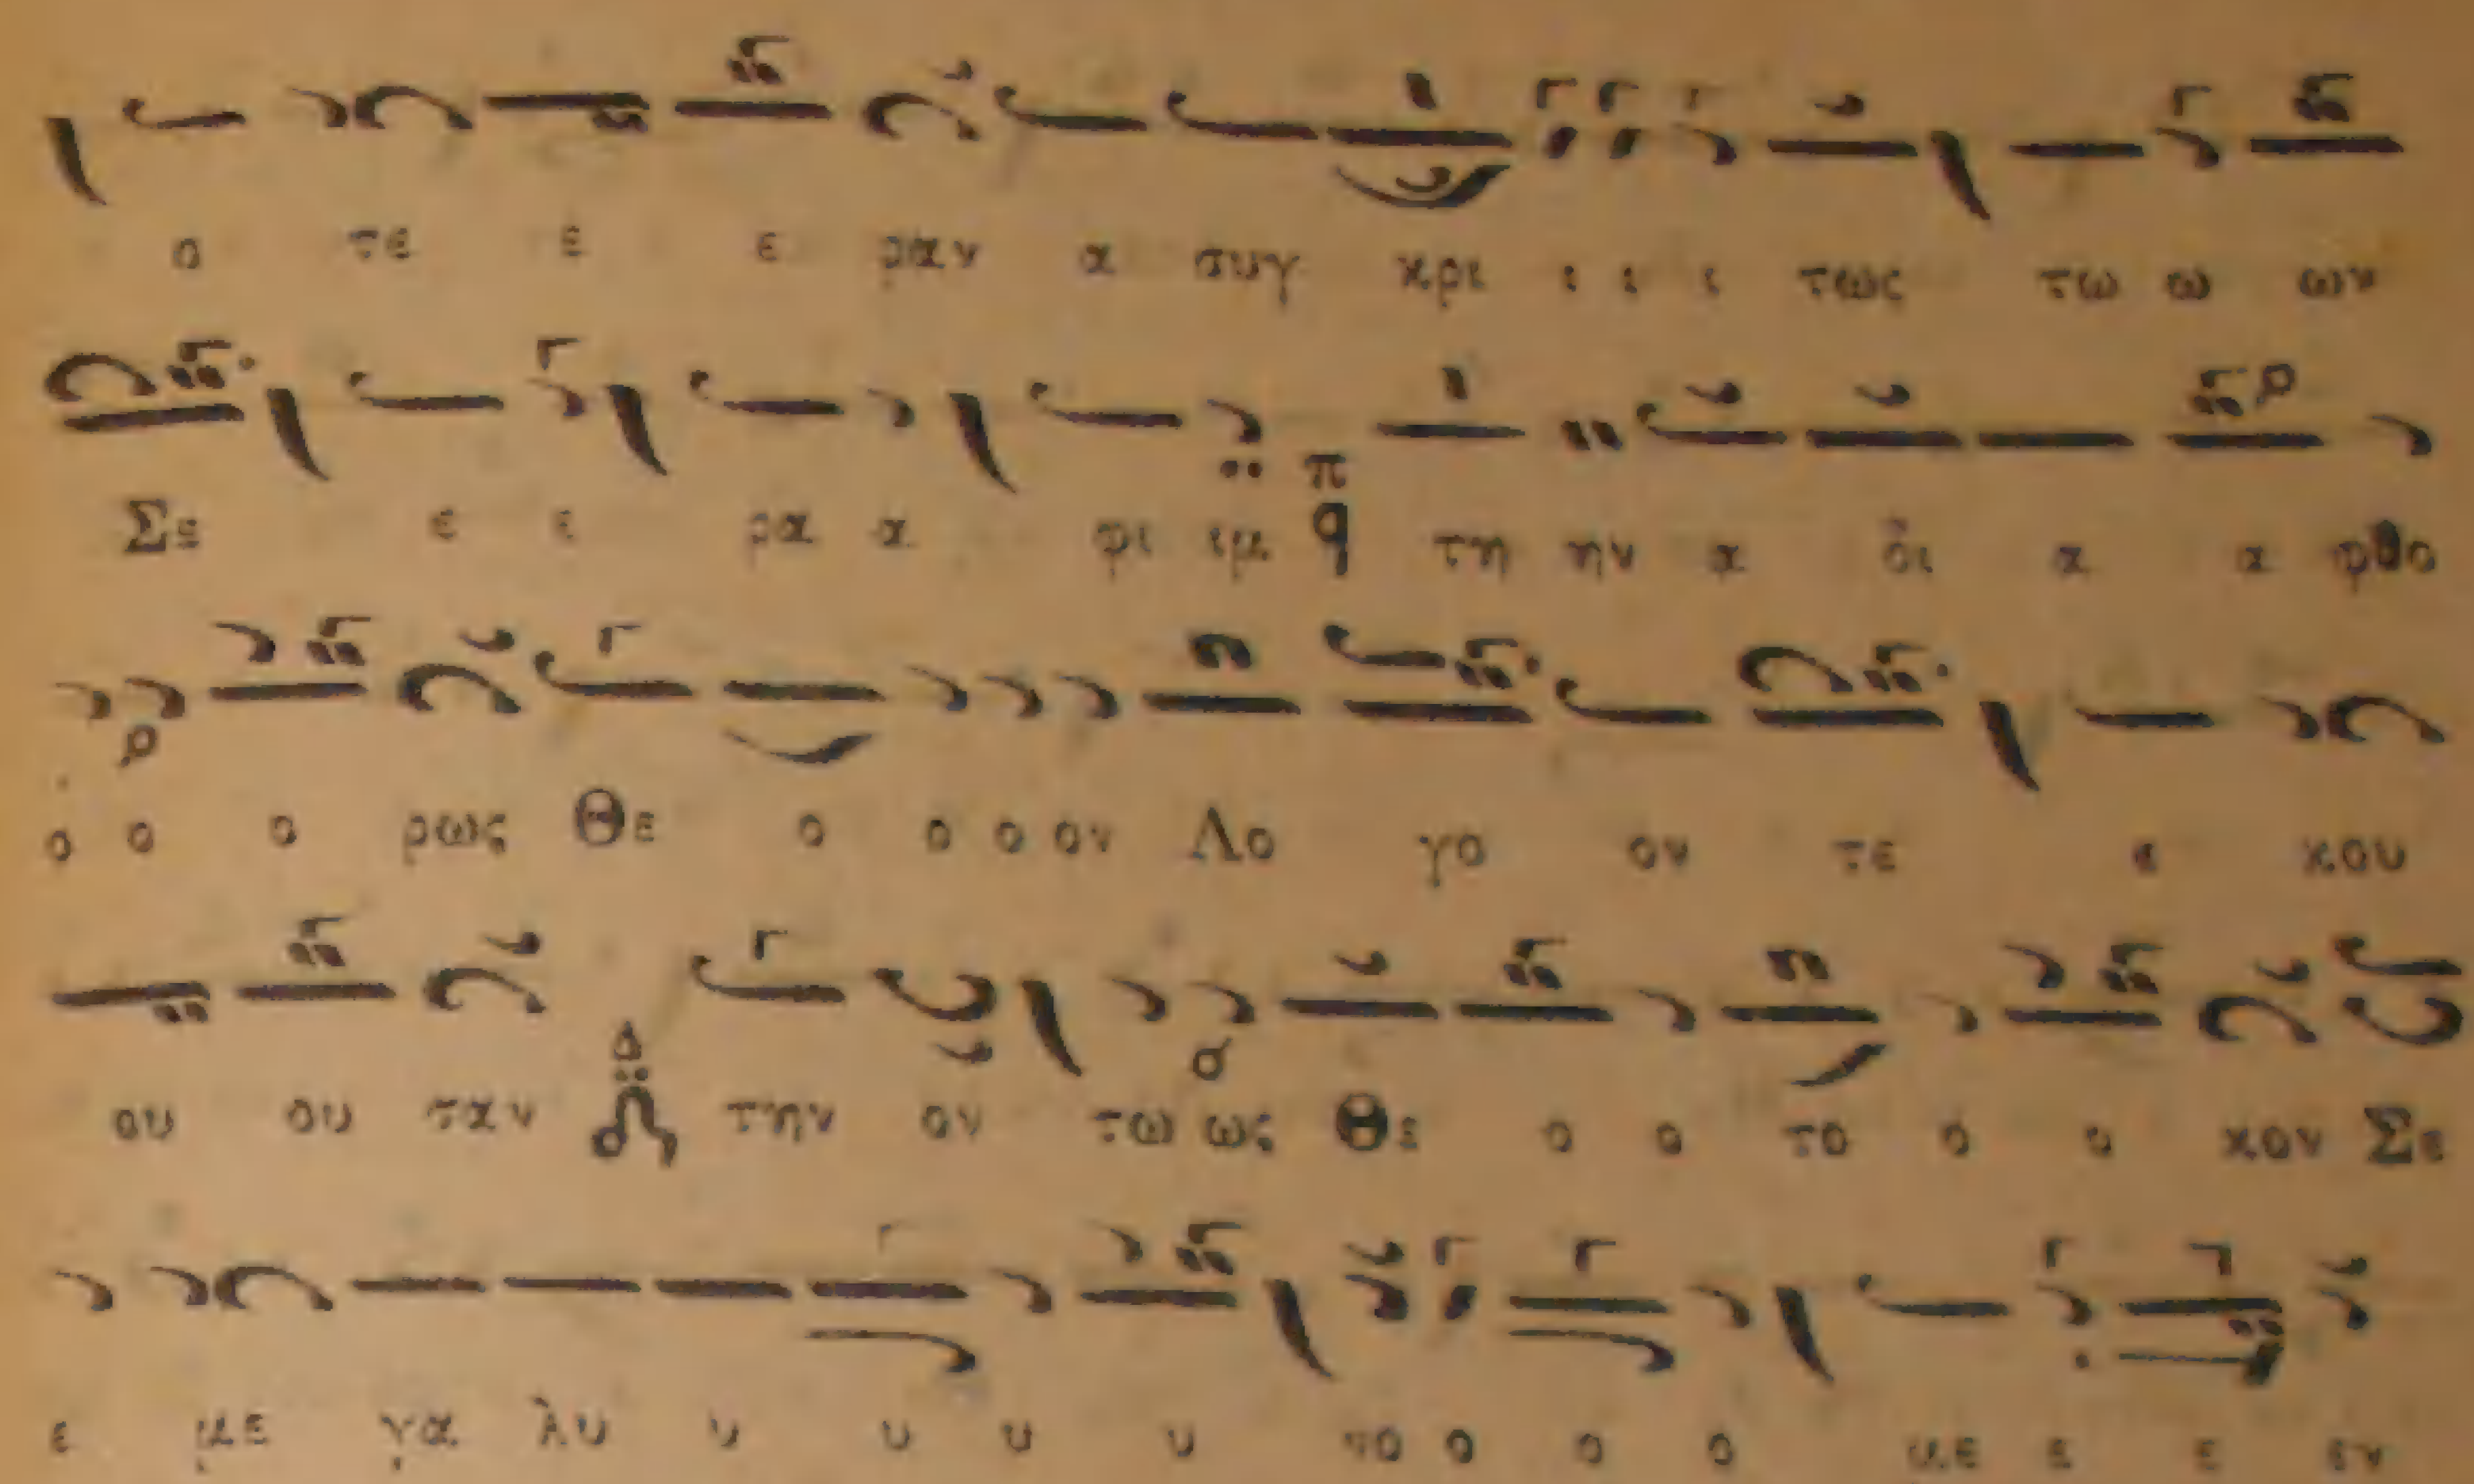 ο τε ε ε ραν α συγ κρι ι ι ι τως τω ω ων
Σε ε ε ρα α φι ιμ π q τη ην α δι α α φθο
ο ο ο ρως Θε ο ο ο ον Λο γο ον τε ε κου
ου ου σαν Δ την ον τω ως Θε ο ο το ο ο κον Σε
ε με γα λυ υ υ υ υ νο ο ο ο με ε ε εν